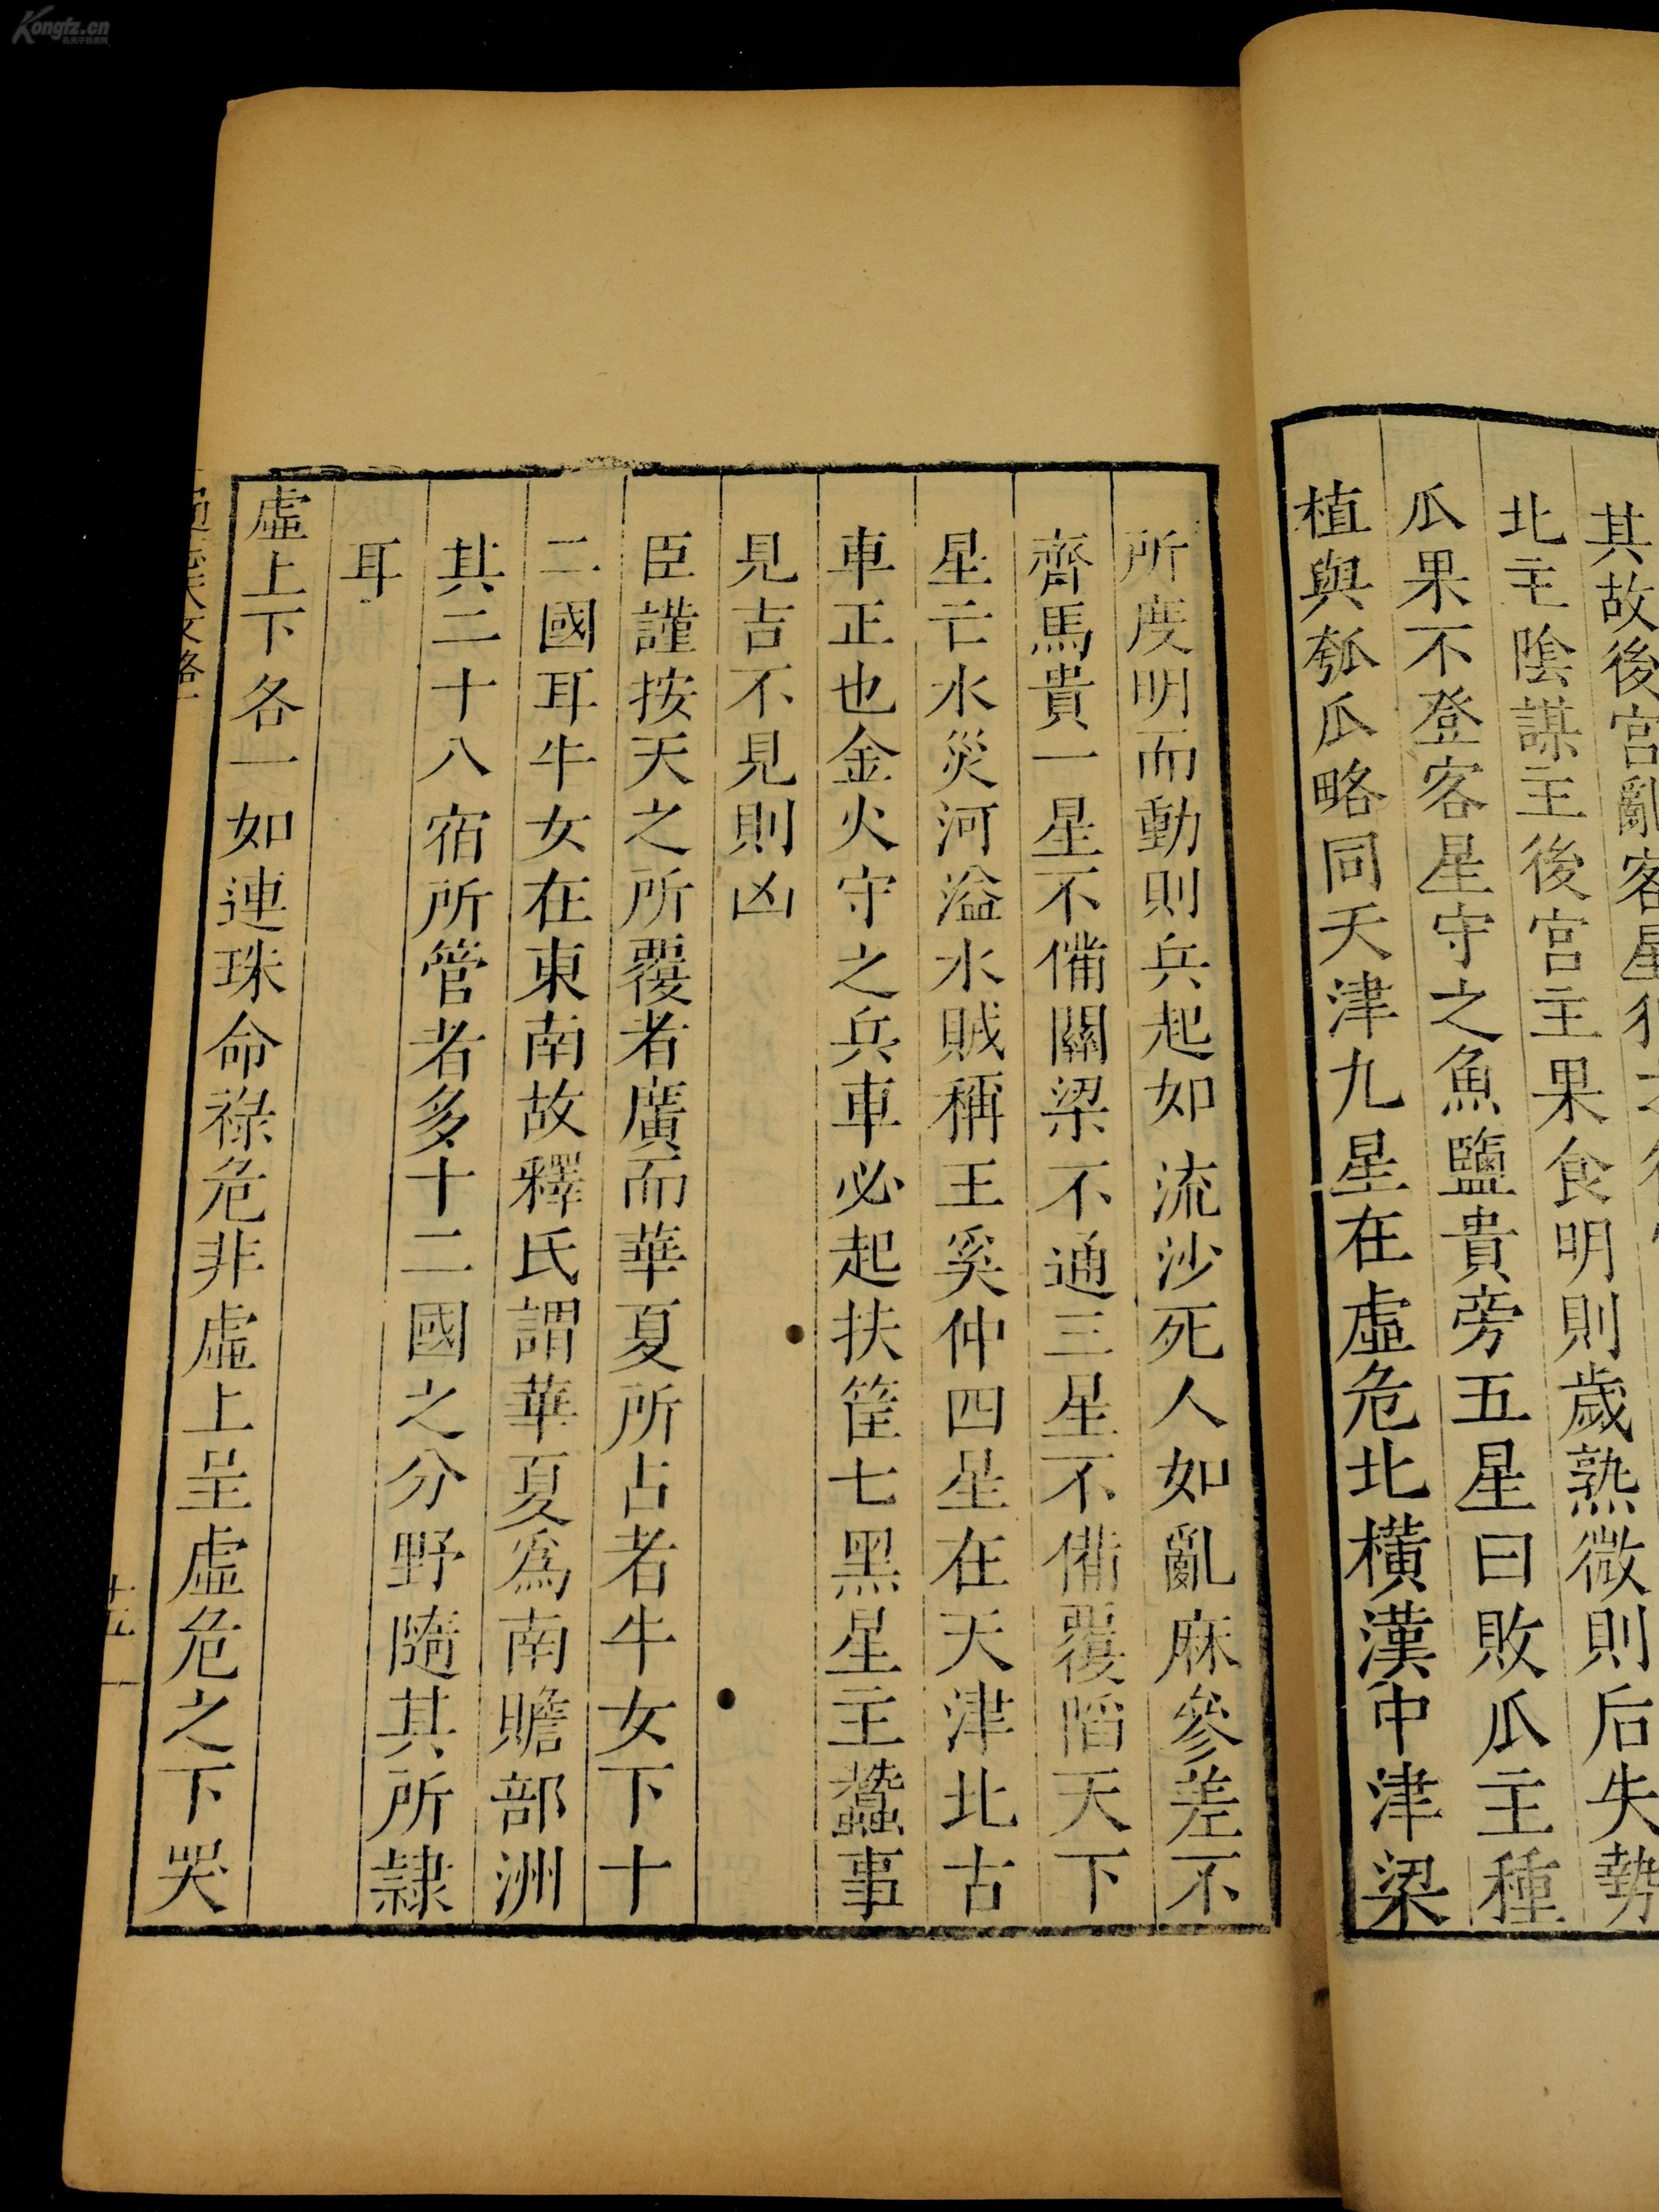 其故後宮亂客星犯
北主陰謀主後宮主果食明則歲熟微則后失勢
瓜果不登客星守之魚鹽貴旁五星曰敗瓜主種
植與瓠瓜略同天津九星在虛危北橫漢中津梁
所度明而動則兵起如流沙死人如亂麻參差不
齊馬貴一星不備關梁不通三星不備覆陷天下
星亡水災河溢水賊稱王奚仲四星在天津北古
車正也金火守之兵車必起扶筐七黑星主蠶事
見吉不見則凶
臣謹按天之所覆者廣而華夏所占者牛女下十
二國耳牛女在東南故釋氏謂華夏為南贍部洲
其二十八宿所管者多十二國之分野隨其所隷
耳
虛上下各一如連珠命祿危非虛上呈虛危之下哭
十五
Kongfz.cn